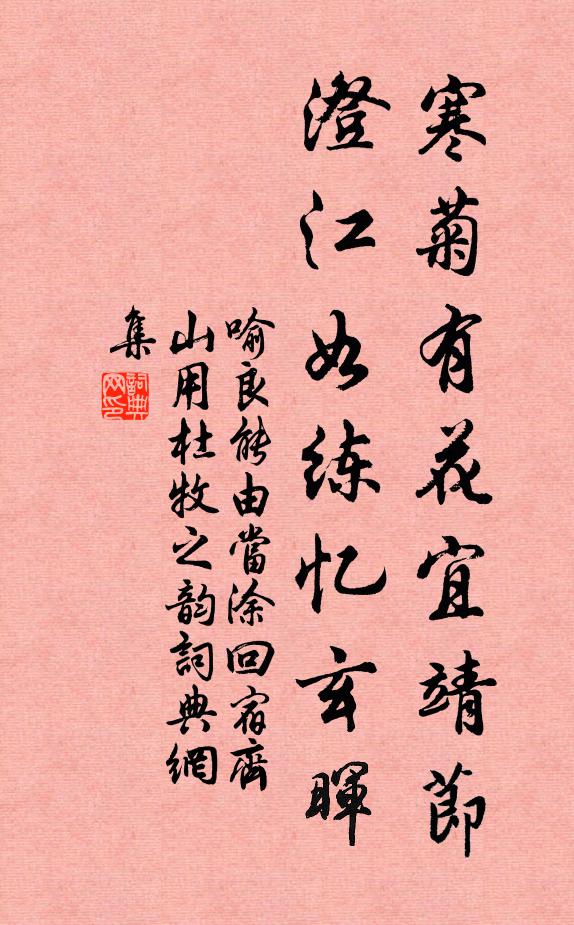 寒菊有花宜靖節
澄江如练忆玄暉
喻良能由當涂回宿齊
山用杜牧之韵詞典網
集
詞典
网印